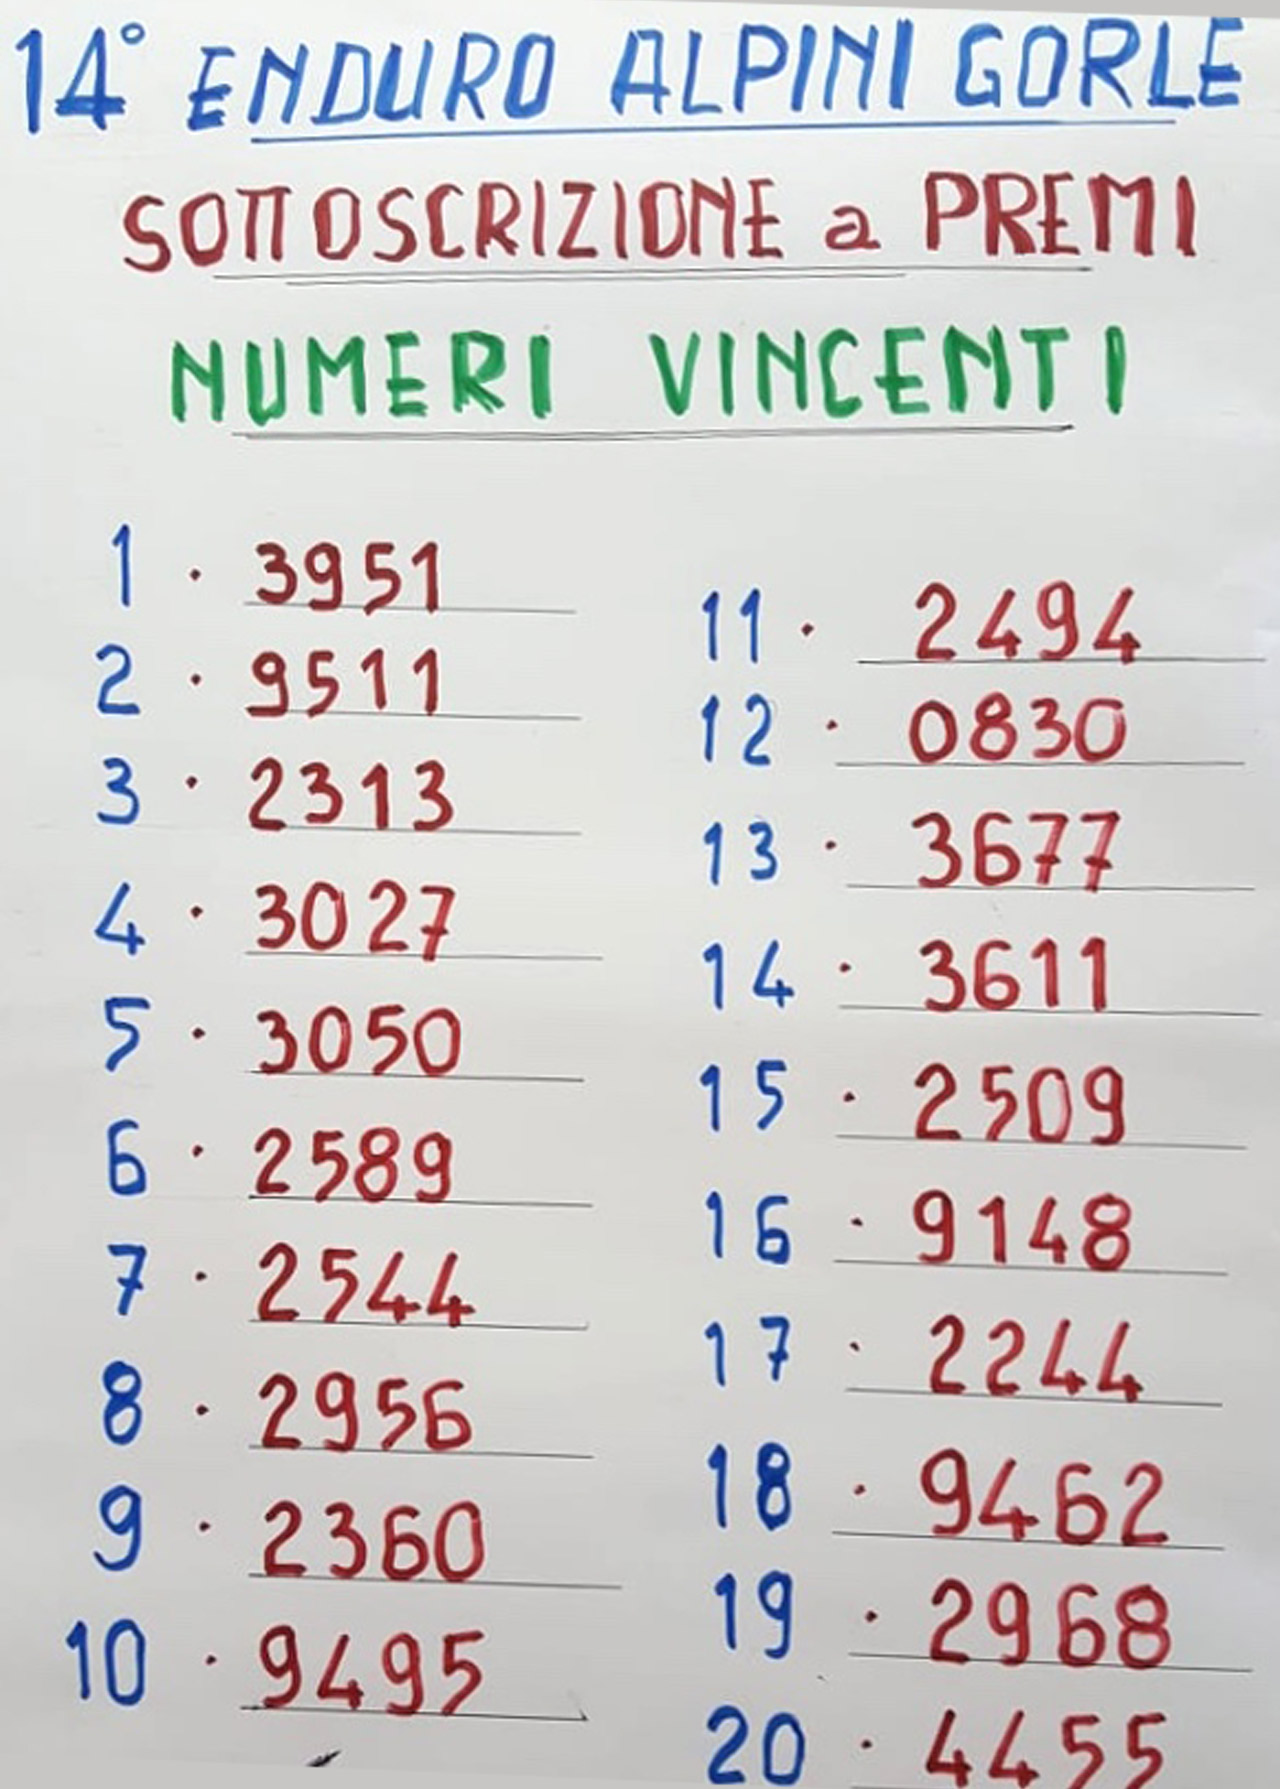 14° ENDURO ALPINI GORLE
SOTTOSCRIZIONE a PREMI
NUMERI VINCENTI
1 · 3951
2 · 9511
3 · 2313
4 · 3027
5 · 3050
6 · 2589
7 · 2544
8 · 2956
9 · 2360
10 · 9495
11 · 2494
12 · 0830
13 · 3677
14 · 3611
15 · 2509
16 · 9148
17 · 2244
18 · 9462
19 · 2968
20 · 4455